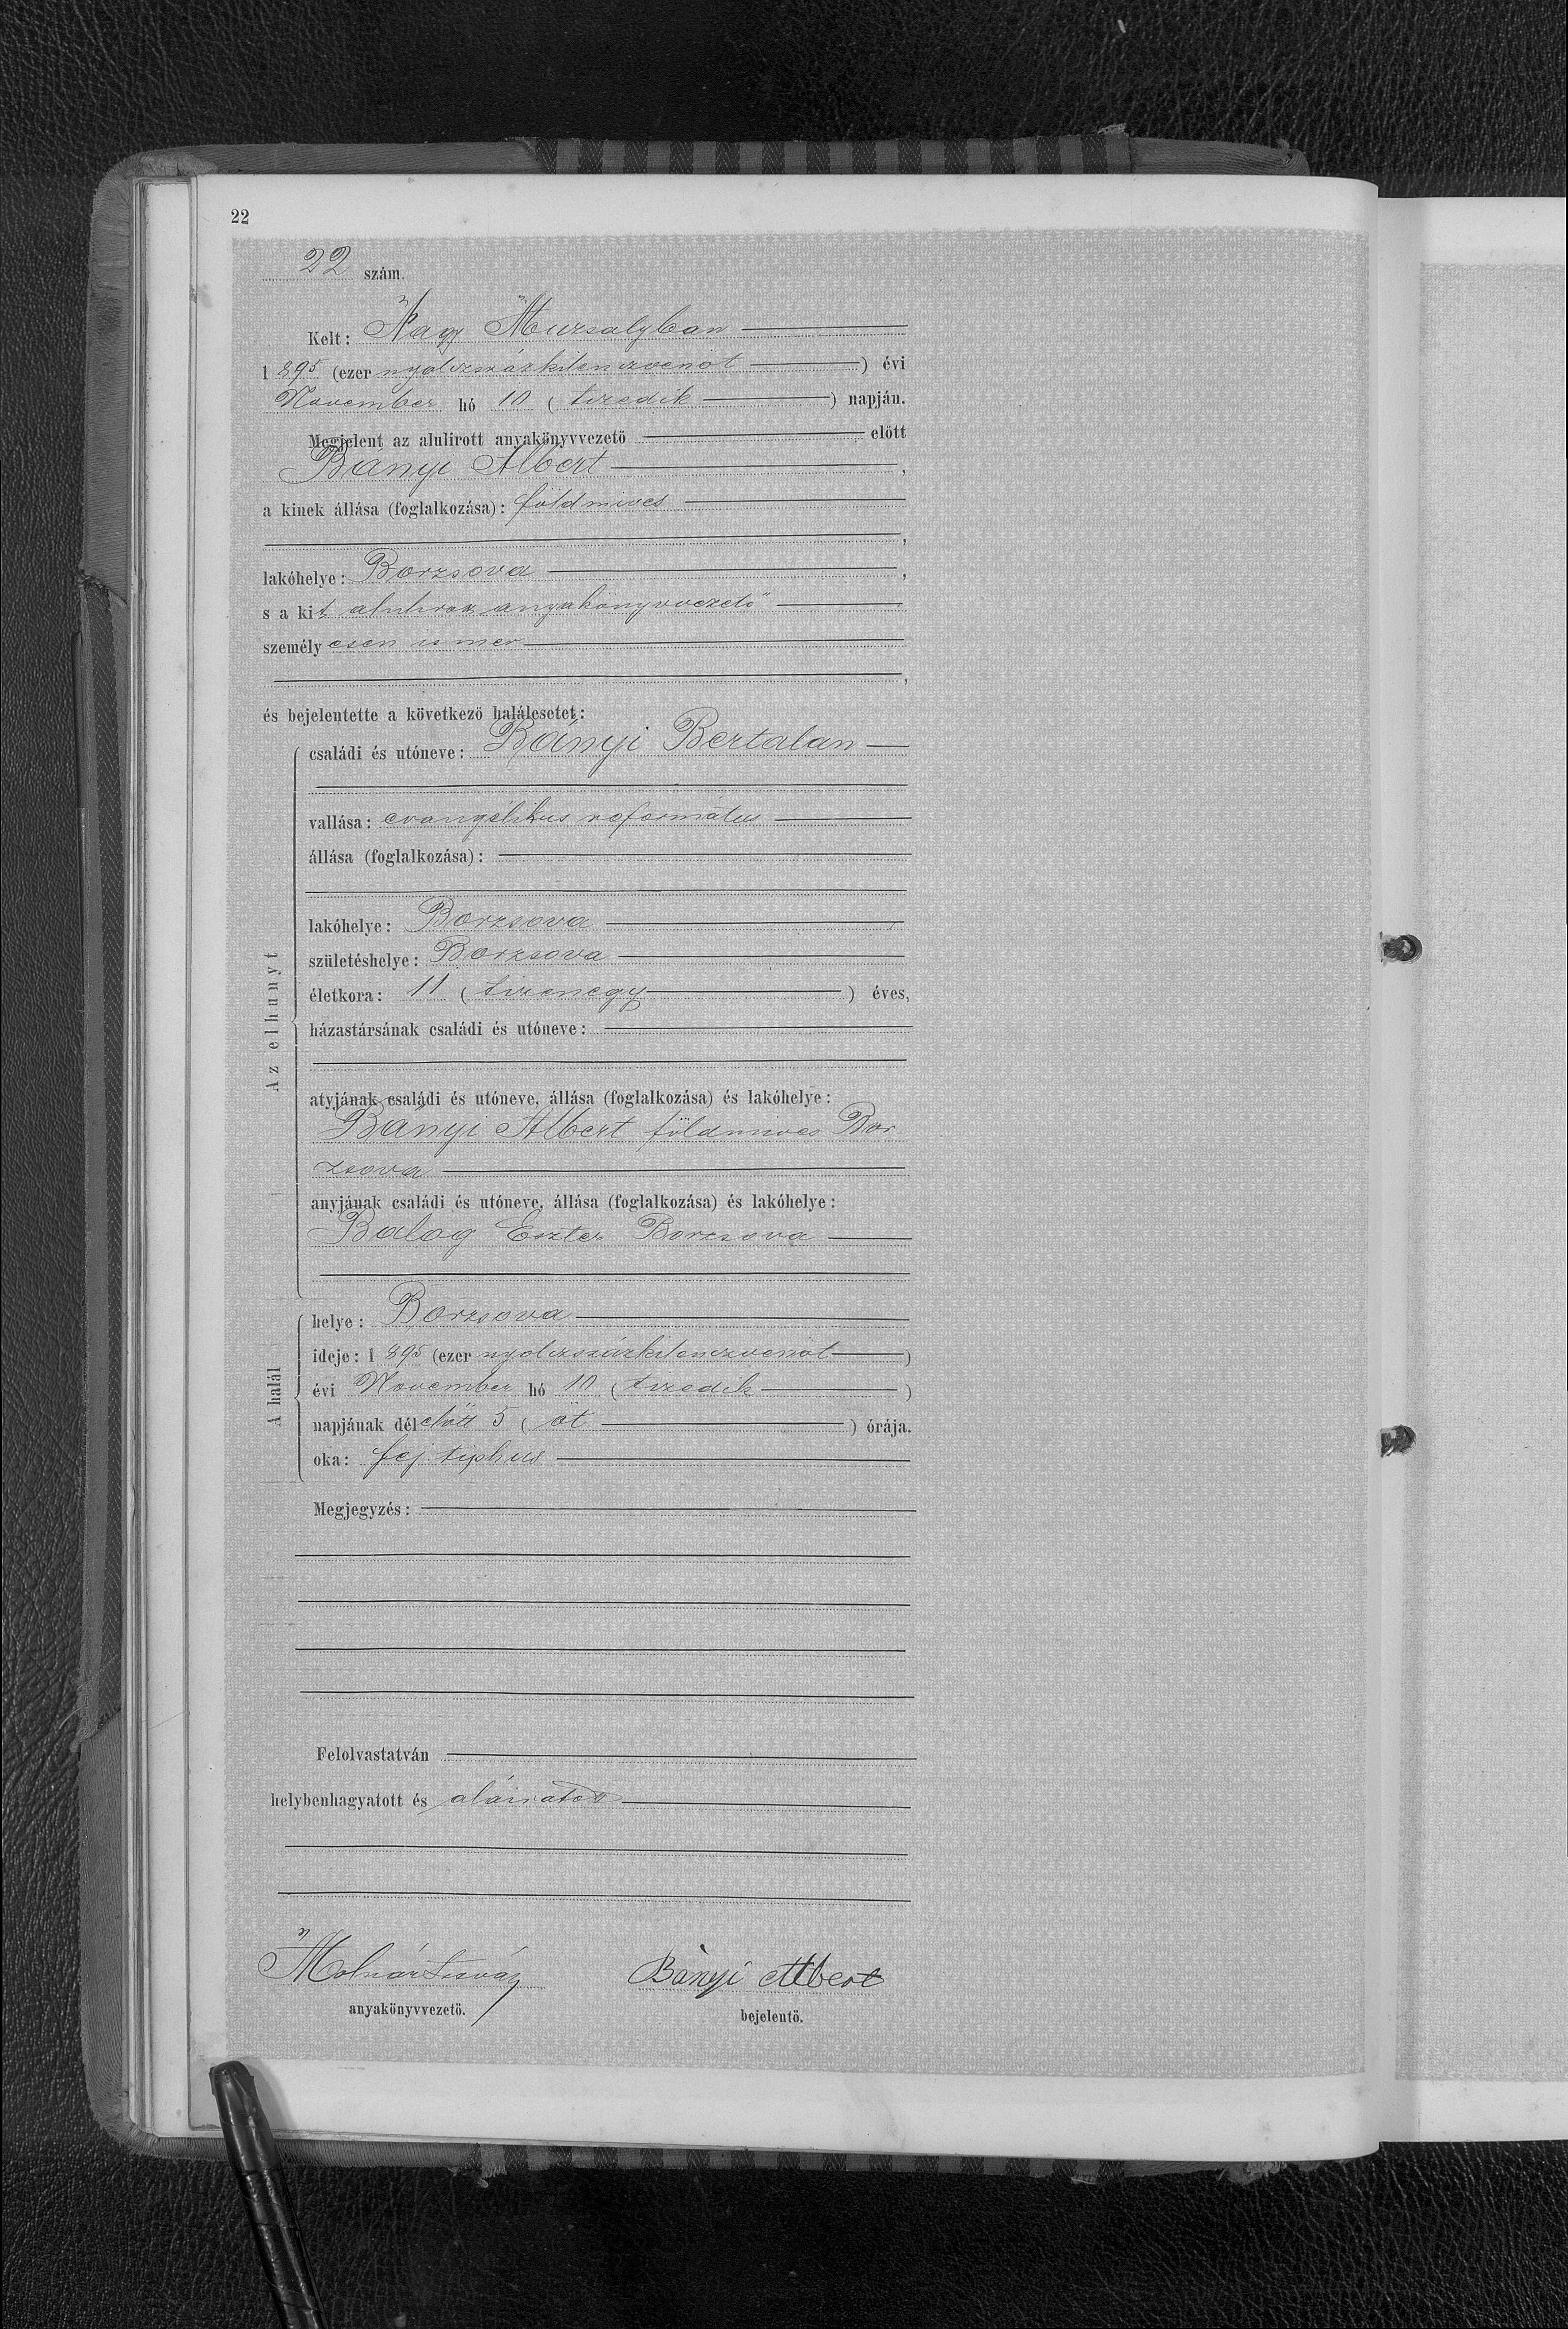 22
22 szám.
Kelt: Nagy Muzsalyban
1 895 (ezer nyolczszázkilenczvenöt) évi
November hó 10 (tizedik) napján.
Megjelent az alulirott anyakönyvvezető előtt
Bányi Albert,
a kinek állása (foglalkozása): földmives
,
lakóhelye: Borzsova,
s a kit alulirott anyakönyvvezető
személyesen ismer
,
és bejelentette a következő halálesetet:
Az elhunyt
családi és utóneve: Bányi Bertalan
vallása: evangélikus református
állása (foglalkozása):
lakóhelye: Borzsova
születéshelye: Borzsova
életkora: 11 (tizenegy) éves,
házastársának családi és utóneve:
atyjának családi és utóneve, állása (foglalkozása) és lakóhelye:
Bányi Albert földmives Bor
zsova
anyjának családi és utóneve, állása (foglalkozása) és lakóhelye:
Balog Eszter Borzsova
A halál
helye: Borzsova
ideje: 1 895 (ezer nyolczszázkilenczvenöt)
évi November hó 10 (tizedik)
napjának délelőtt 5 (öt) órája.
oka: fej tiphus
Megjegyzés:
Felolvastatván
helybenhagyatott és aláiratott
Molnár István Bányi Albert
anyakönyvvezető. bejelentő.